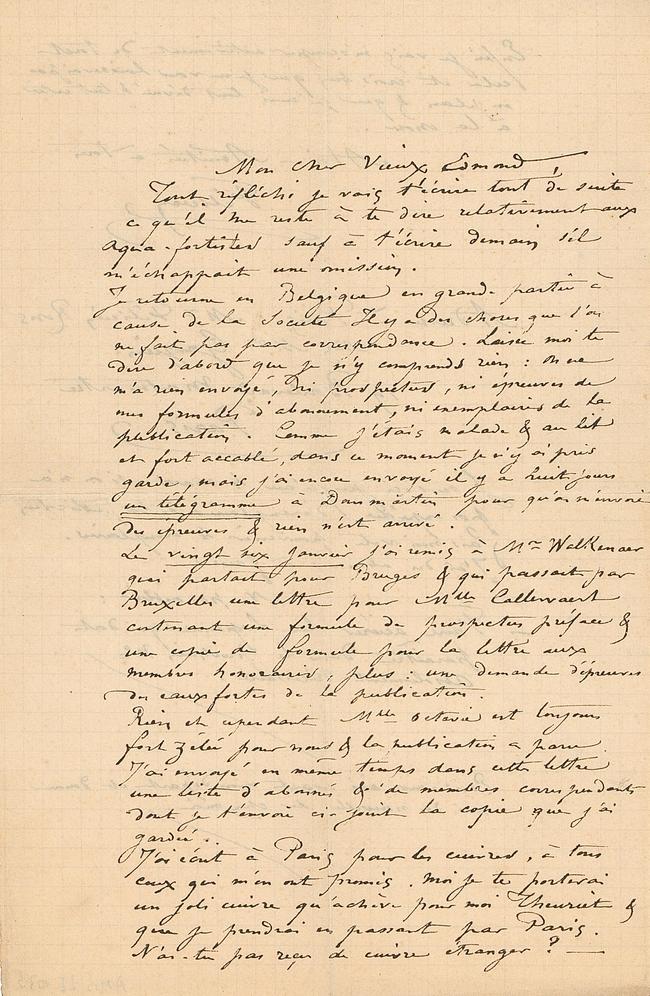 Mon cher Vieux Edmond
Tout réfléchi je vais t'écrire tout de suite
ce qu'il me reste à te dire relativement aux
aqua-fortistes sauf à t'écrire demain s'il
m'échappait une omission.
Je retourne en Belgique en grande partie à
cause de la Société Il y a des choses que l'on
ne fait pas par correspondance. Laisse moi te
dire d'abord que je n'y comprends rien : on ne
m'a rien envoyé, ni prospectus, ni épreuves de
mes formules d'abonnement, ni exemplaires de la
publication. Comme j'étais malade & au lit
et fort accablé, dans ce moment je n'y ai pris
garde, mais j'ai encore envoyé il y a huit jours
un télégramme à Danmartin pour qu'on m'envoie
des épreuves & rien n'est arrivé.
Le vingt six janvier j'ai remis à Mr Walkenaer
qui partait pour Bruges & qui passait par
Bruxelles une lettre pour Mlle Callewaert
contenant une formule de prospectus préface &
une copie de formule pour la lettre aux
membres honoraires, plus : une demande d'épreuves
des eaux fortes de la publication.
Rien et cependant Mlle Octavie est toujours
fort zélée pour nous & la publication a paru.
J'ai envoyé en même temps dans cette lettre
une liste d'abonnés & de membres correspondants
dont je t'envoie ci-joint la copie que j'ai
gardée.
J'ai écrit à Paris pour les cuivres, à tous
ceux qui m'en ont promis. Moi je te porterai
un joli cuivre qu'achève pour moi Theuriet &
que je prendrai en passant par Paris.
N'as-tu pas reçu de cuivre étranger ? —